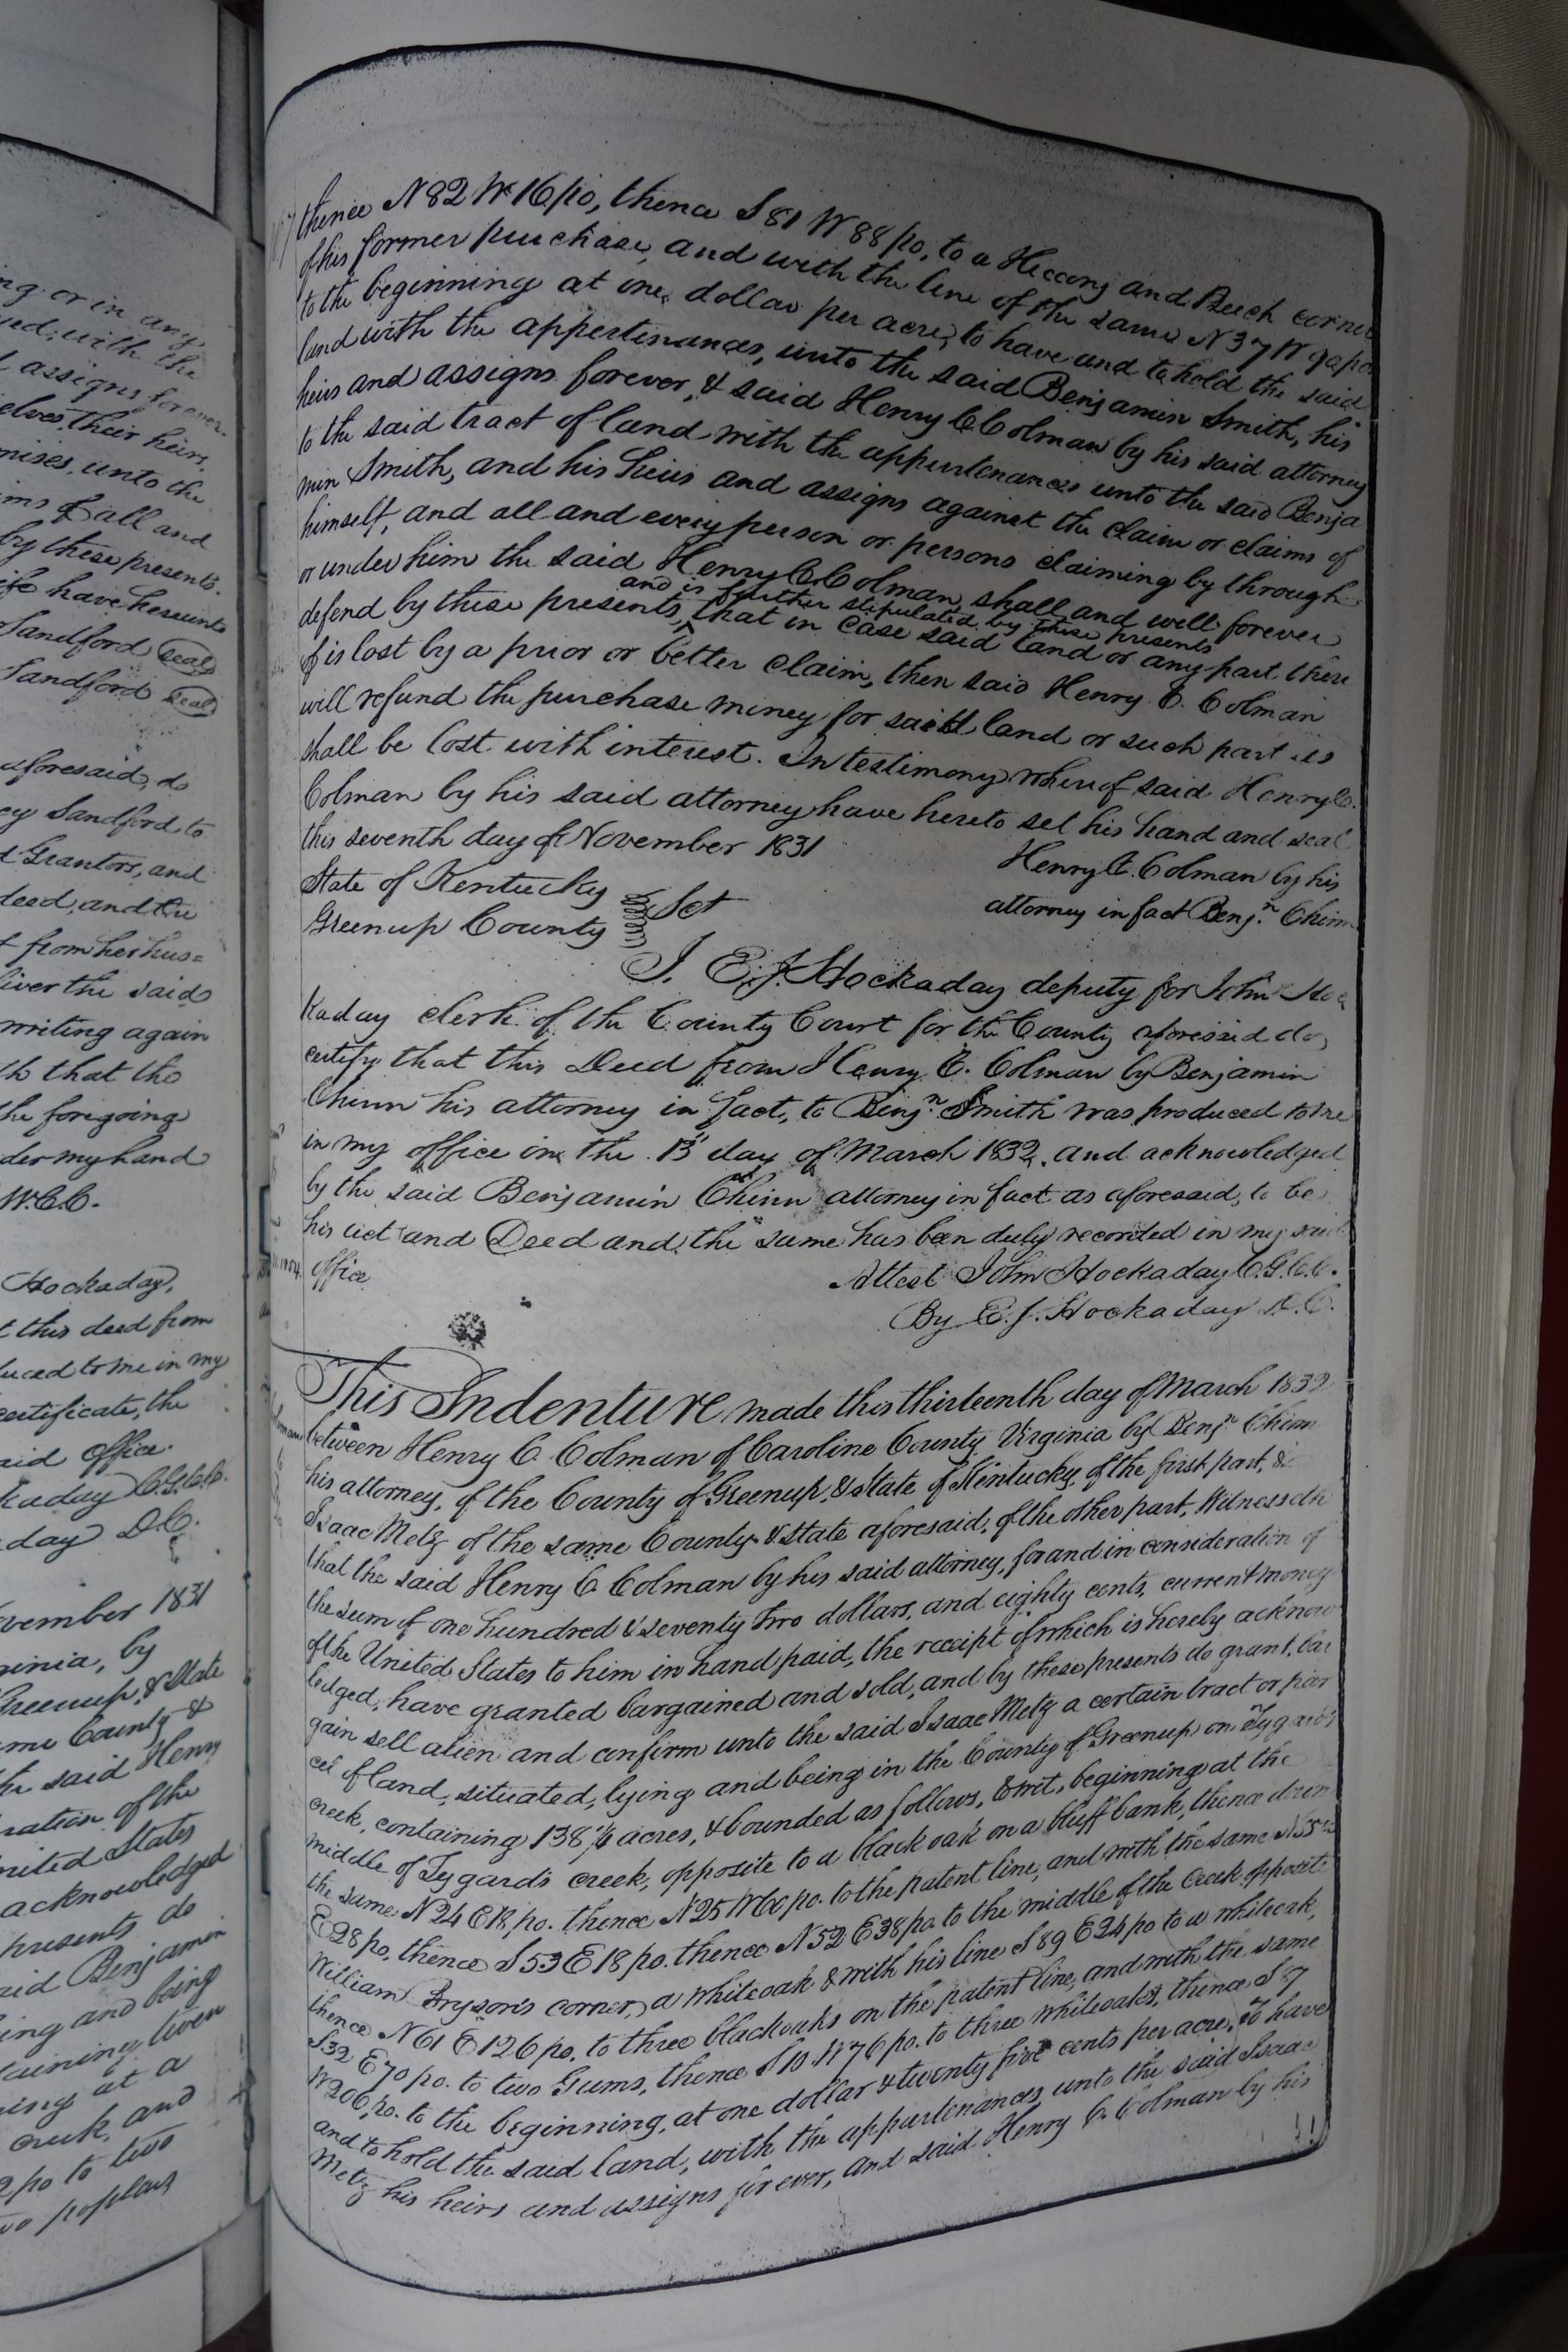 ng or in any
ued, with the
l assigns forever.
elves, their heirs,
mises, unto the
ims of all and
by these presents.
ife have hereunto
Sandford seal
Sandford seal
aforesaid, do
ey Sandford to
d Grantors, and
deed, and the
t from her hus=
liver the said
writing again
th that the
the foregoing
der my hand
W.C.C.
Hockaday,
t this deed from
duced to me in my
certificate, the
said office.
kaday C.G.C.C.
day D.C.
vember 1831
ginia, by
Greenup, & State
me County &
he said Henry
ration of the
nited States
acknowledged
presents do
aid Benjamin
ing and being
taining
ing at a
creek, and
2 po to two
wo poplars
thence N 82 W 16 po, thence S 81 W 88 po, to a Hiccory and Beech corner
of his former purchase, and with the line of the same N 37 W po
to the beginning at one dollar per acre, to have and to hold the said
land with the appertenances, unto the said Benjamin Smith, his
heirs and assigns forever, & said Henry C Colman by his said attorney
to the said tract of land with the appurtenances unto the said Benja
min Smith, and his heirs and assigns against the claim or claims of
himself, and all and every person or persons claiming by through
or under him the said Henry C Colman, shall and will forever
and is further stipulated by these presents
defend by these presents, that in case said land or any part there
of is lost by a prior or better claim, then said Henry C. Colman
will refund the purchase money for said land or such part as
shall be lost with interest. In testimony whereof said Henry C.
Colman by his said attorney have hereto set his hand and seal
this seventh day of November 1831
Henry C. Colman by his
attorney in fact Benjn Chinn
State of Kentucky
Greenup County Sct
I. E. J. Hockaday deputy for John Hoc
kaday clerk of the County Court for the County aforesaid do,
certify that this Deed from Henry C. Colman by Benjamin
Chinn his attorney in fact, to Benjn Smith was produced to me
in my office on the 13" day of March 1832, and acknowledged
by the said Benjamin Chinn attorney in fact as aforesaid, to be
his act and Deed and the same has been duly recorded in my said
office
Attest John Hockaday C.G.C.C.
By E. J. Hockaday D.C.
This Indenture made this thirteenth day of March 1832
between Henry C. Colman of Caroline County Virginia by Benjn Chinn
his attorney, of the County of Greenup, & State of Kentucky, of the first part, &
Isaac Metz of the same County & State aforesaid, of the other part, Witnesseth
that the said Henry C Colman by his said attorney, for and in consideration of
the sum of one hundred & seventy two dollars, and eighty cents, current money
of the United States to him in hand paid, the receipt of which is hereby acknow
ledged, have granted bargained and sold, and by these presents do grant, bar
gain sell alien and confirm unto the said Isaac Metz a certain tract or par
cel of land, situated, lying and being in the County of Greenup on Tygards
creek, containing 138 acres, & bounded as follows, towit, beginning at the
middle of Tygard's creek, opposite to a black oak on a bluff bank, thence down
the same N 24 E 18 po. thence N 25 W po. to the patent line, and with the same N 55
E 28 po, thence S 53 E 18 po. thence N 52 E 38 po. to the middle of the creek opposite
William Bryson's corner, a whiteoak & with his line S 89 E 24 po to a whiteoak,
thence N 61 E 126 po. to three blackoaks on the patent line, and with the same
S 32 E 70 po. to two Gums, thence S 10 W 76 po. to three whiteoaks, thence S 87
W 206 po. to the beginning, at one dollar & twenty five cents per acre, To have
and to hold the said land, with the appurtenances unto the said Isaac
Metz his heirs and assigns forever, and said Henry C. Colman by his